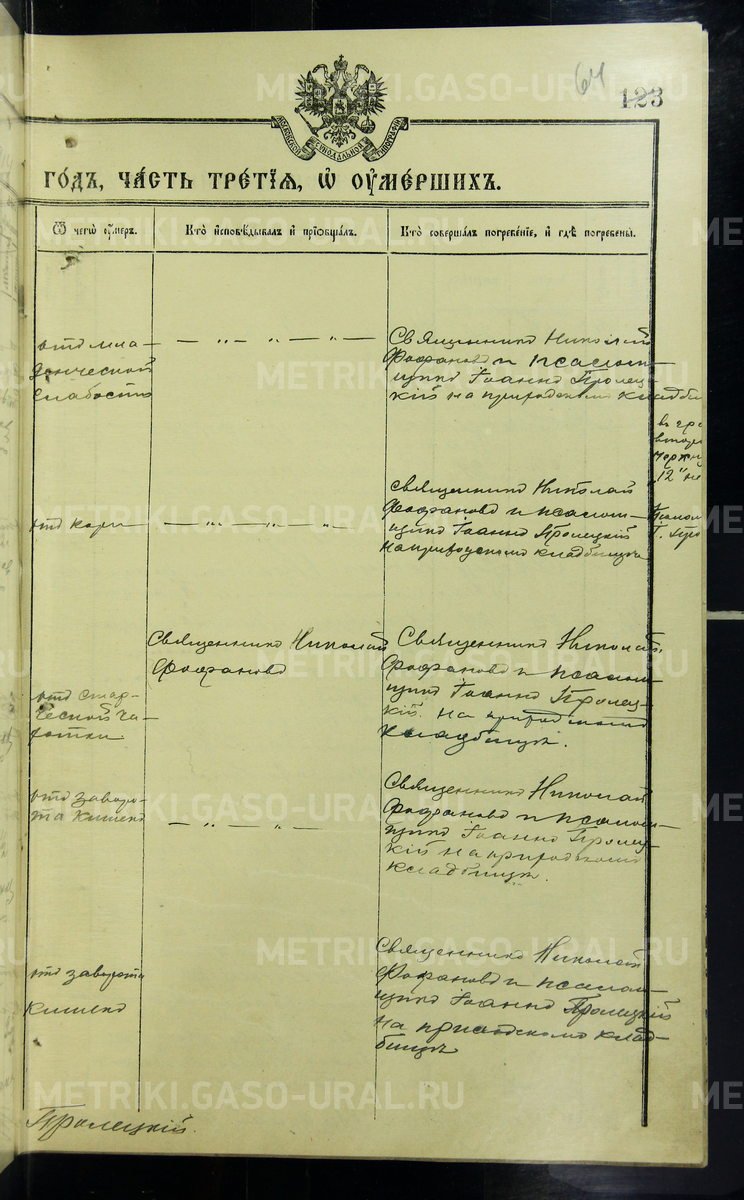 64
123
МОСКОВСКОЙ СИНОДАЛЬНОЙ ТИПОГРАФІИ
ГОДЪ, ЧАСТЬ ТРЕТІЯ, Ѡ ОУМЕРШИХЪ.
Ѿ чегѡ оумеръ.
Кто исповѣдывалъ и пріобщалъ.
Кто совершалъ погребеніе, и гдѣ погребены.
отъ мла-
денческой
слабости
Священникъ Николай
Фофановъ и псалом-
щикъ Іоаннъ Пролец-
кій на приходскомъ кладби
отъ кори
Священникъ Николай
Фофановъ и псалом-
щикъ Іоаннъ Пролецкій
на приходскомъ кладбищѣ
Священникъ Николай
Фофановъ
отъ стар-
ческой ча-
хотки.
Священникъ Николай
Фофановъ и псалом-
щикъ Іоаннъ Пролец-
кій. на приходскомъ
кладбищѣ.
отъ заворо-
та кишекъ
Священникъ Николай
Фофановъ и псалом-
щикъ Іоаннъ Пролец-
кій на приходскомъ
кладбищѣ.
отъ заворота
кишекъ
Священникъ Николай
Фофановъ и псалом-
щикъ Іоаннъ Пролецкій
на приходскомъ клад-
бищѣ
въ гра
"12" не
Псалом
І. Про
Пролецкій.
METRIKI.GASO-URAL.RU